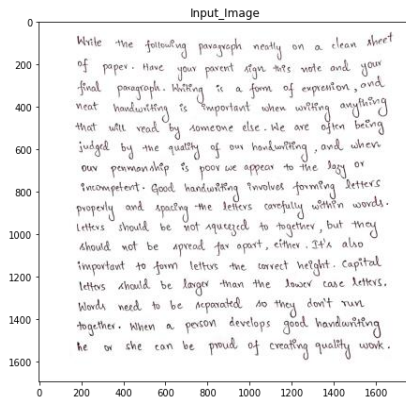 Input_Image
0
200
400
600
800
1000
1200
1400
1600
Write the following paragraph neatly on a clean sheet
of paper. Have your parent sign this note and your
final paragraph. Writing is a form of expression, and
neat handwriting is important when writing anything
that will read by someone else. We are often being
judged by the quality of our handwriting, and when
our penmanship is poor we appear to the lazy or
incompetent. Good handwriting involves forming letters
properly and spacing the letters carefully within words.
Letters should be not squeezed to together, but they
should not be spread far apart, either. It's also
important to form letters the correct height. Capital
letters should be larger than the lower case letters.
Words need to be separated so they don't run
together. When a person develops good handwriting
he or she can be proud of creating quality work.
0 200 400 600 800 1000 1200 1400 1600